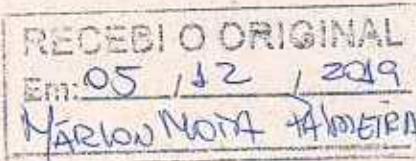 RECEBI O ORIGINAL
Em: 05 / 12 / 2019
MÁRLON MOTA